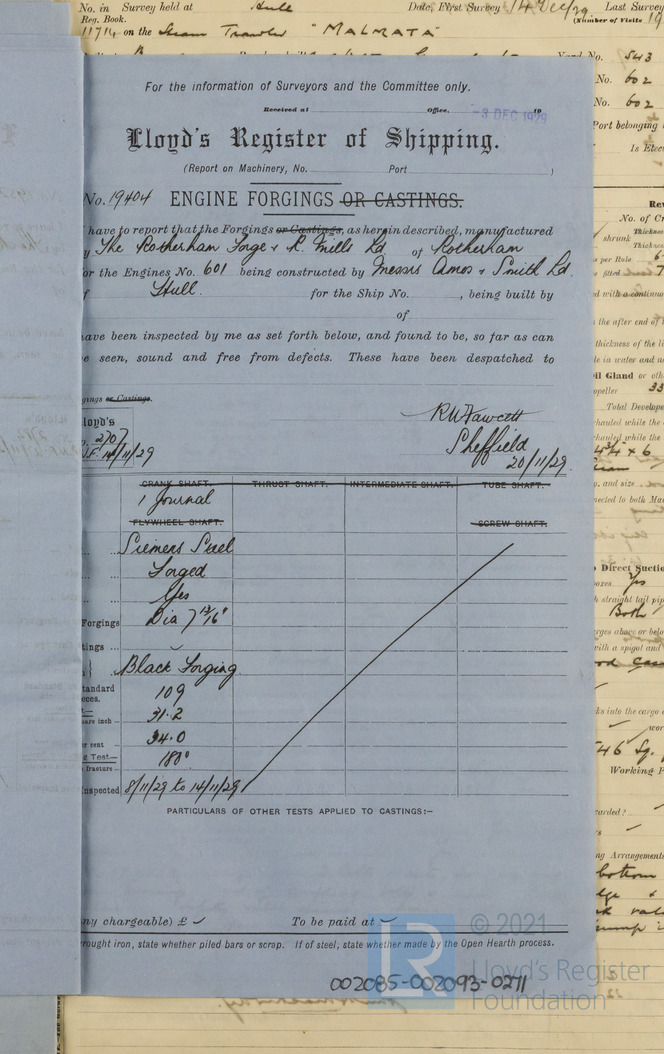 No. in Survey held at Hull Date, First Survey 14 Dec/29 Last Survey
Reg. Book. (Number of Visits 19
11714 on the Steam Trawler "MALMATA"
Yard No. 543
No. 602
No. 602
Port belonging
Is Elec
For the information of Surveyors and the Committee only.
Received at Office, -3 DEC 1929 19
Lloyd's Register of Shipping.
(Report on Machinery, No. Port )
No. 19404 ENGINE FORGINGS OR CASTINGS.
have to report that the Forgings or Castings, as herein described, manufactured
y The Rotherham Forge & R. Mills Ld of Rotherham
or the Engines No. 601 being constructed by Messrs Amos & Smith Ld.
f Hull. for the Ship No. , being built by
of
ave been inspected by me as set forth below, and found to be, so far as can
e seen, sound and free from defects. These have been despatched to
gings or Castings.
loyd's
2707
14/11/29
RW Fawcett
Sheffield
20/11/29.
CRANK SHAFT. THRUST SHAFT. INTERMEDIATE SHAFT. TUBE SHAFT.
1 Journal
FLYWHEEL SHAFT. SCREW SHAFT.
Siemens Steel
Forged
Yes
Forgings Dia 7 13/16"
tings
Black Forging
tandard
eces. 109
are inch 31.2
r cent 34.0
g Test— 180°
fracture
nspected 8/11/29 to 14/11/29
PARTICULARS OF OTHER TESTS APPLIED TO CASTINGS:—
ny chargeable) £ To be paid at
rought iron, state whether piled bars or scrap. If of steel, state whether made by the Open Hearth process.
002085-002093-0271
LR © 2021
Lloyd's Register
Foundation
No. of C
Thickness
shrunk Thickness
per Rule
d with a continuous
the after end of
thickness of the li
le in water and
il Gland or oth
opeller 33
Total Develop
hauled while the
hauled while the
4 3/4 x 6
o. and size
nected to both Ma
Direct Suction
oxes. Yes
straight tail pip
Both
rges above or belo
with a spigot and
ks into the cargo
46 Sq.
Working P
arded?
ng Arrangements
bottom